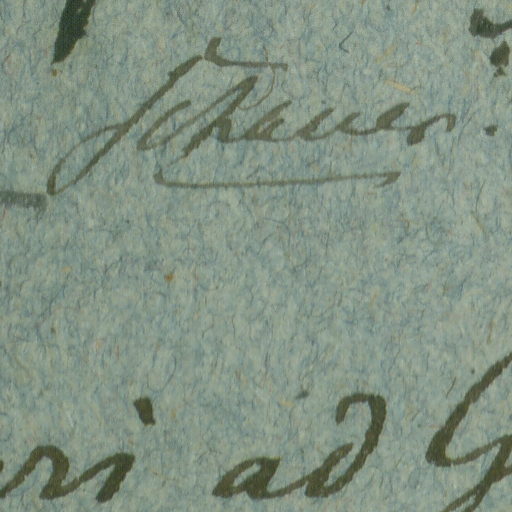 Schauer.
ri ad G